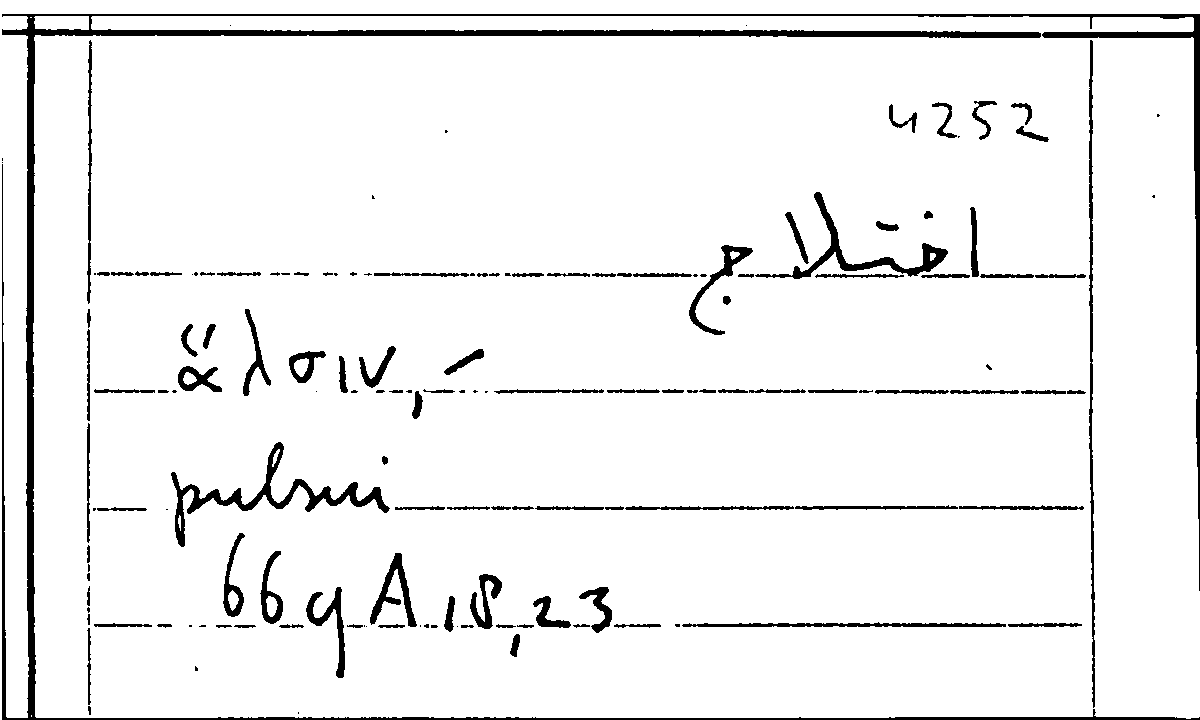 4252
اختلاج
ἅλσιν, –
pulsui
669A18,23